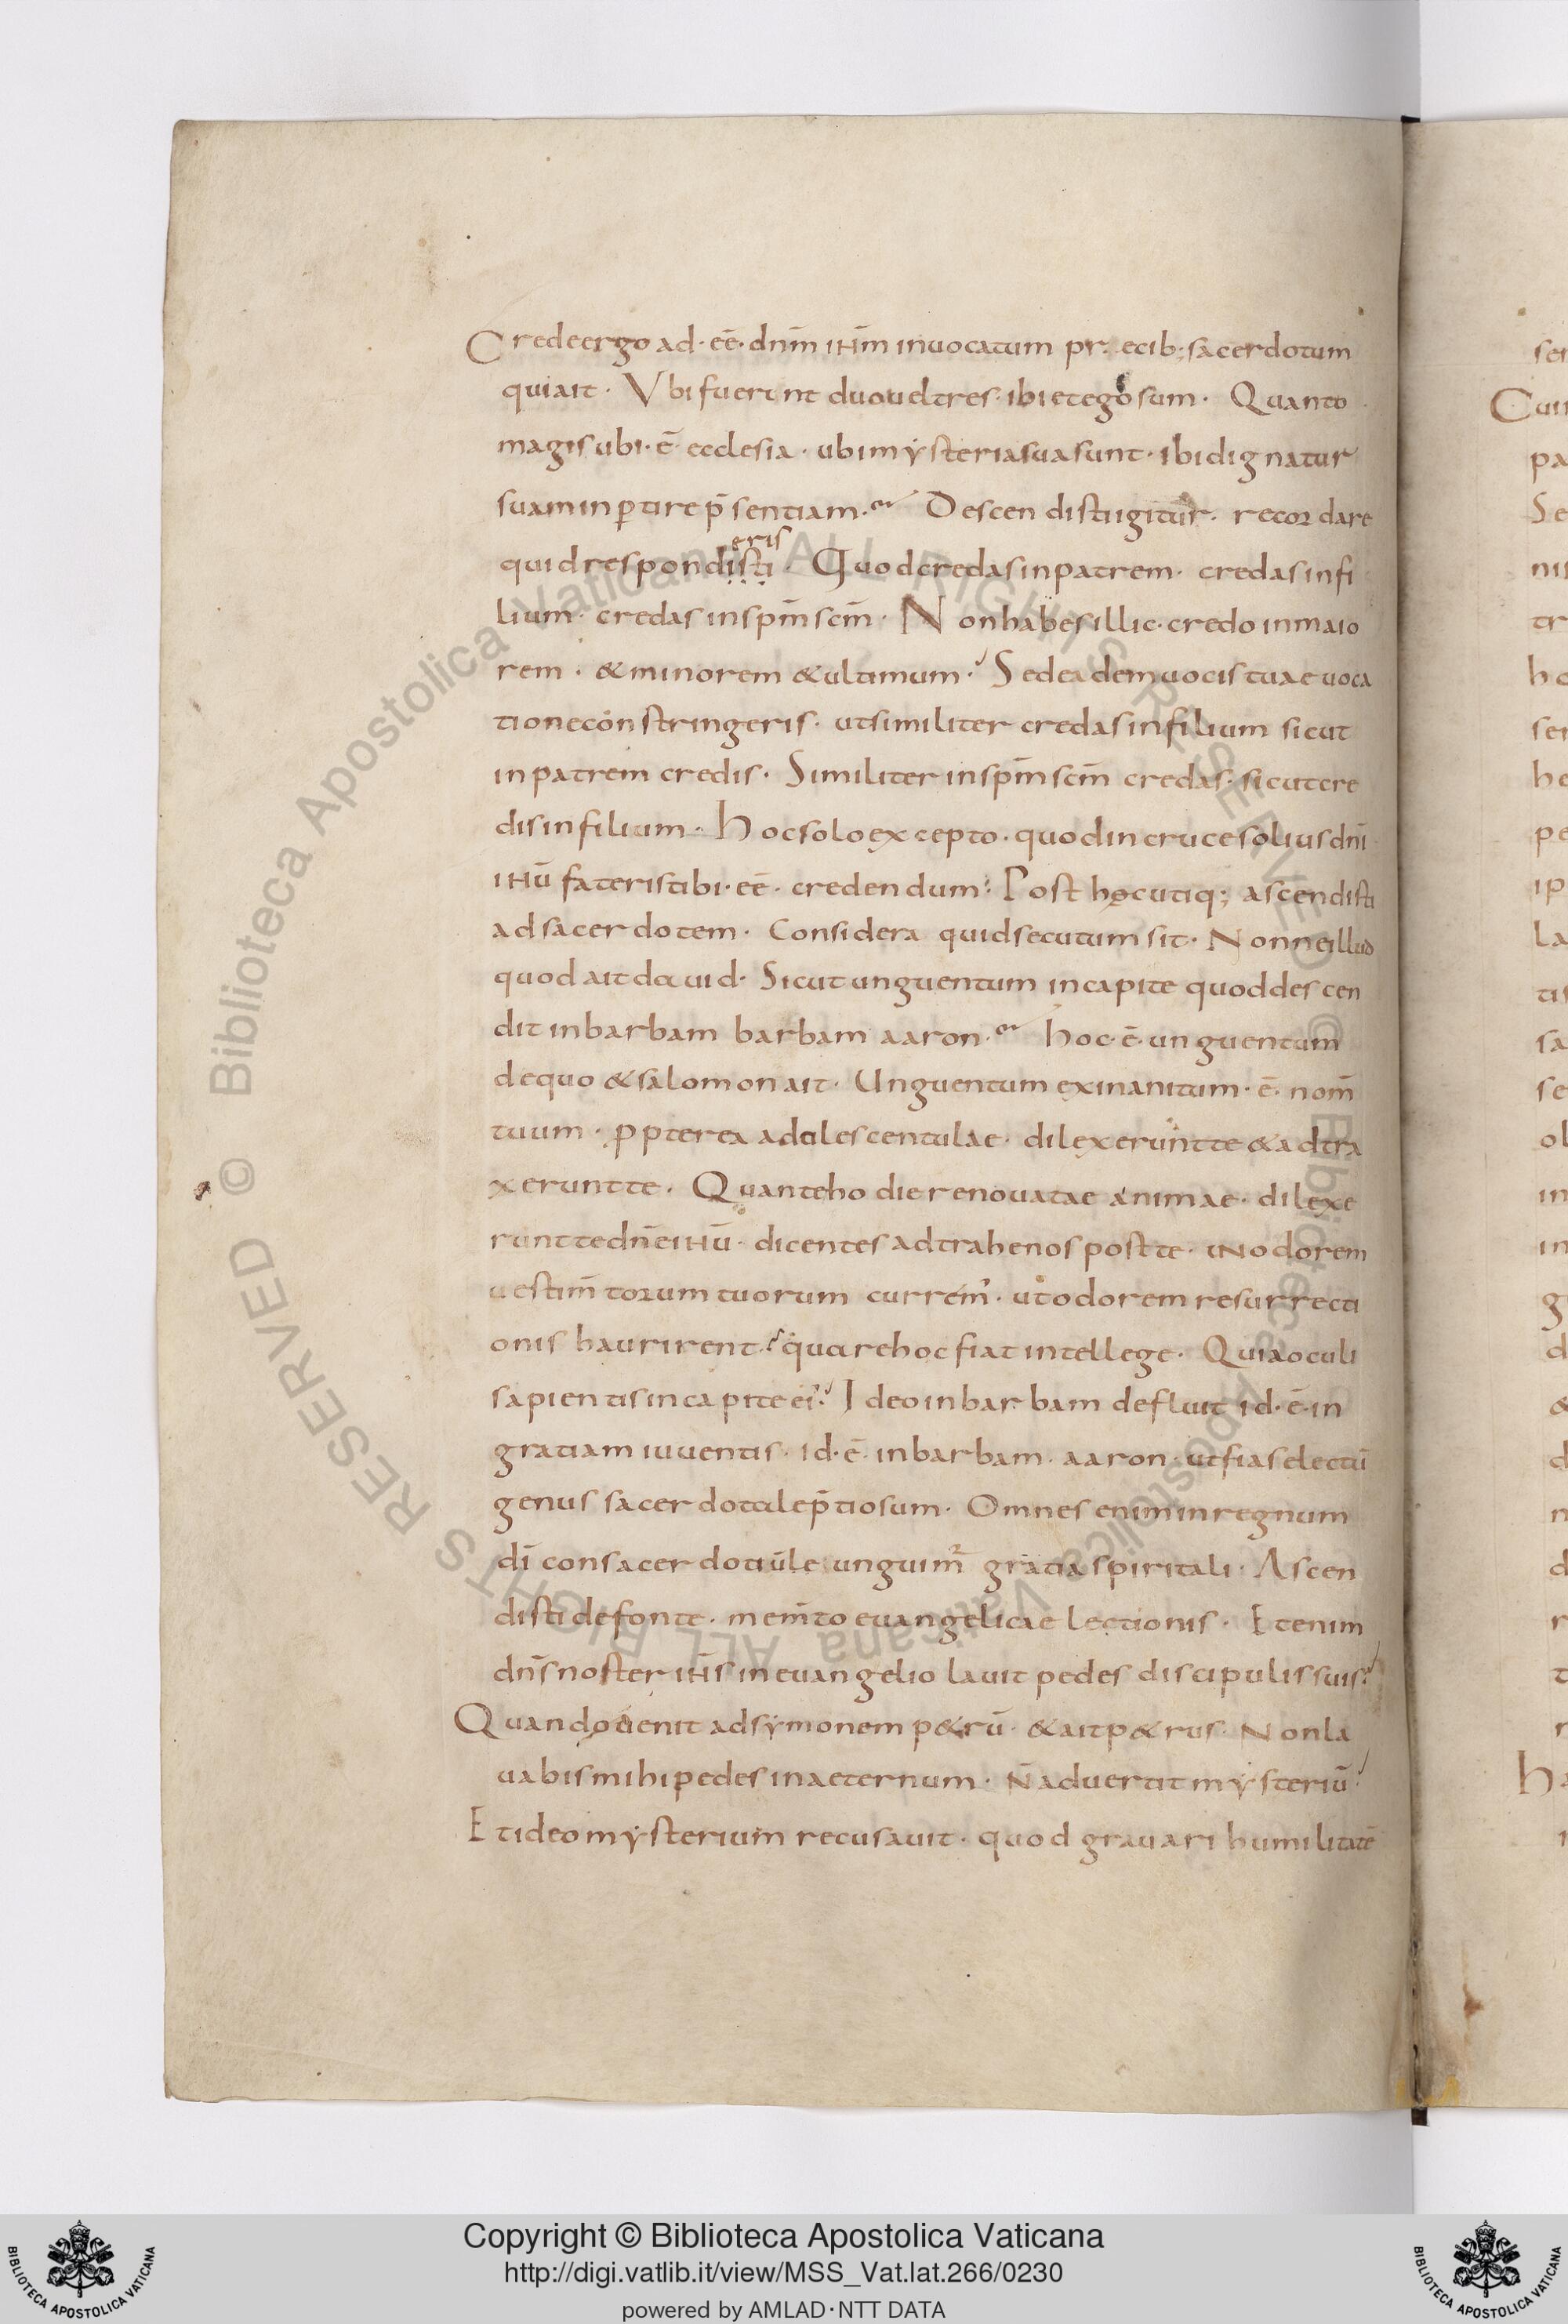 Credeergo ad·eē·dnm̄ ιħm̄ inuocatum pr: ecib; sacerdotum
quiait· Vbi fuerint duo uel tres· ibi et ego sum· Quanto
magis ubi·ē· ecclesia· ubi mẏsteria sua sunt· ibi dignatur
suam inꝑtire p̄sentiam· Descendisti igitur· recordare
quid respondisti· Quod credas in patrem· credas in fi
eris
lium· credas in spm̄ scm̄· Non habes illic· credo in maio
rem· & minorem & ultimum· Sed eadem uocis tuae uoca
tione constringeris· ut similiter credas in filium sicut
in patrem credis· Similiter in spm̄ scm̄ credas· sicut cre
dis in filium· Hoc solo excepto· quod in cruce solius dnī
ιħū fateris tibi·eē· credendum: Post hęc utiq; ascendisti
ad sacerdotem· Considera quid secutum sit· Nonne illud
quod ait dauid· Sicut unguentum in capite quod descen
dit in barbam barbam aaron· hoc·ē·unguentum
de quo & salomon ait· Unguentum exinanitum·ē· nom̄
tuum· ꝓpterea adulescentulae· dilexerunt te & adtra
xerunt te· Quante hodie renouatae animae· dilexe
runt te dn̄e ιħū· dicentes adtrahe nos post te· iN odorem
uestim̄torum tuorum currem'· ut odorem resurrecti
onis haurirent· quare hoc fiat intellege· Quia oculi
sapientis in capite ei'· Ideo in barbam defluit id·ē·in
gratiam iuuentis· id·ē· in barbam· aaron· ut fias electū
genus sacerdotale p̄tiosum· Omnes enim in regnum
dī con sacerdotale unguim̄ gratia spiritali· Ascen
disti de fonte· mem̄to euangelicae lectionis· Etenim
dn̄s noster ιħs in euangelio lauit pedes discipulis suis·
Quando uenit ad sẏmonem p&rū· & ait p&rus· Non la
uabis mihi pedes in aeternum· N̄ aduertit mẏsteriū·
Et ideo mẏsterium recusauit· quod grauari humilitatē
Copyright © Biblioteca Apostolica Vaticana
http://digi.vatlib.it/view/MSS_Vat.lat.266/0230
powered by AMLAD·NTT DATA
BIBLIOTECA APOSTOLICA VATICANA
BIBLIOTECA APOSTOLICA VATICANA